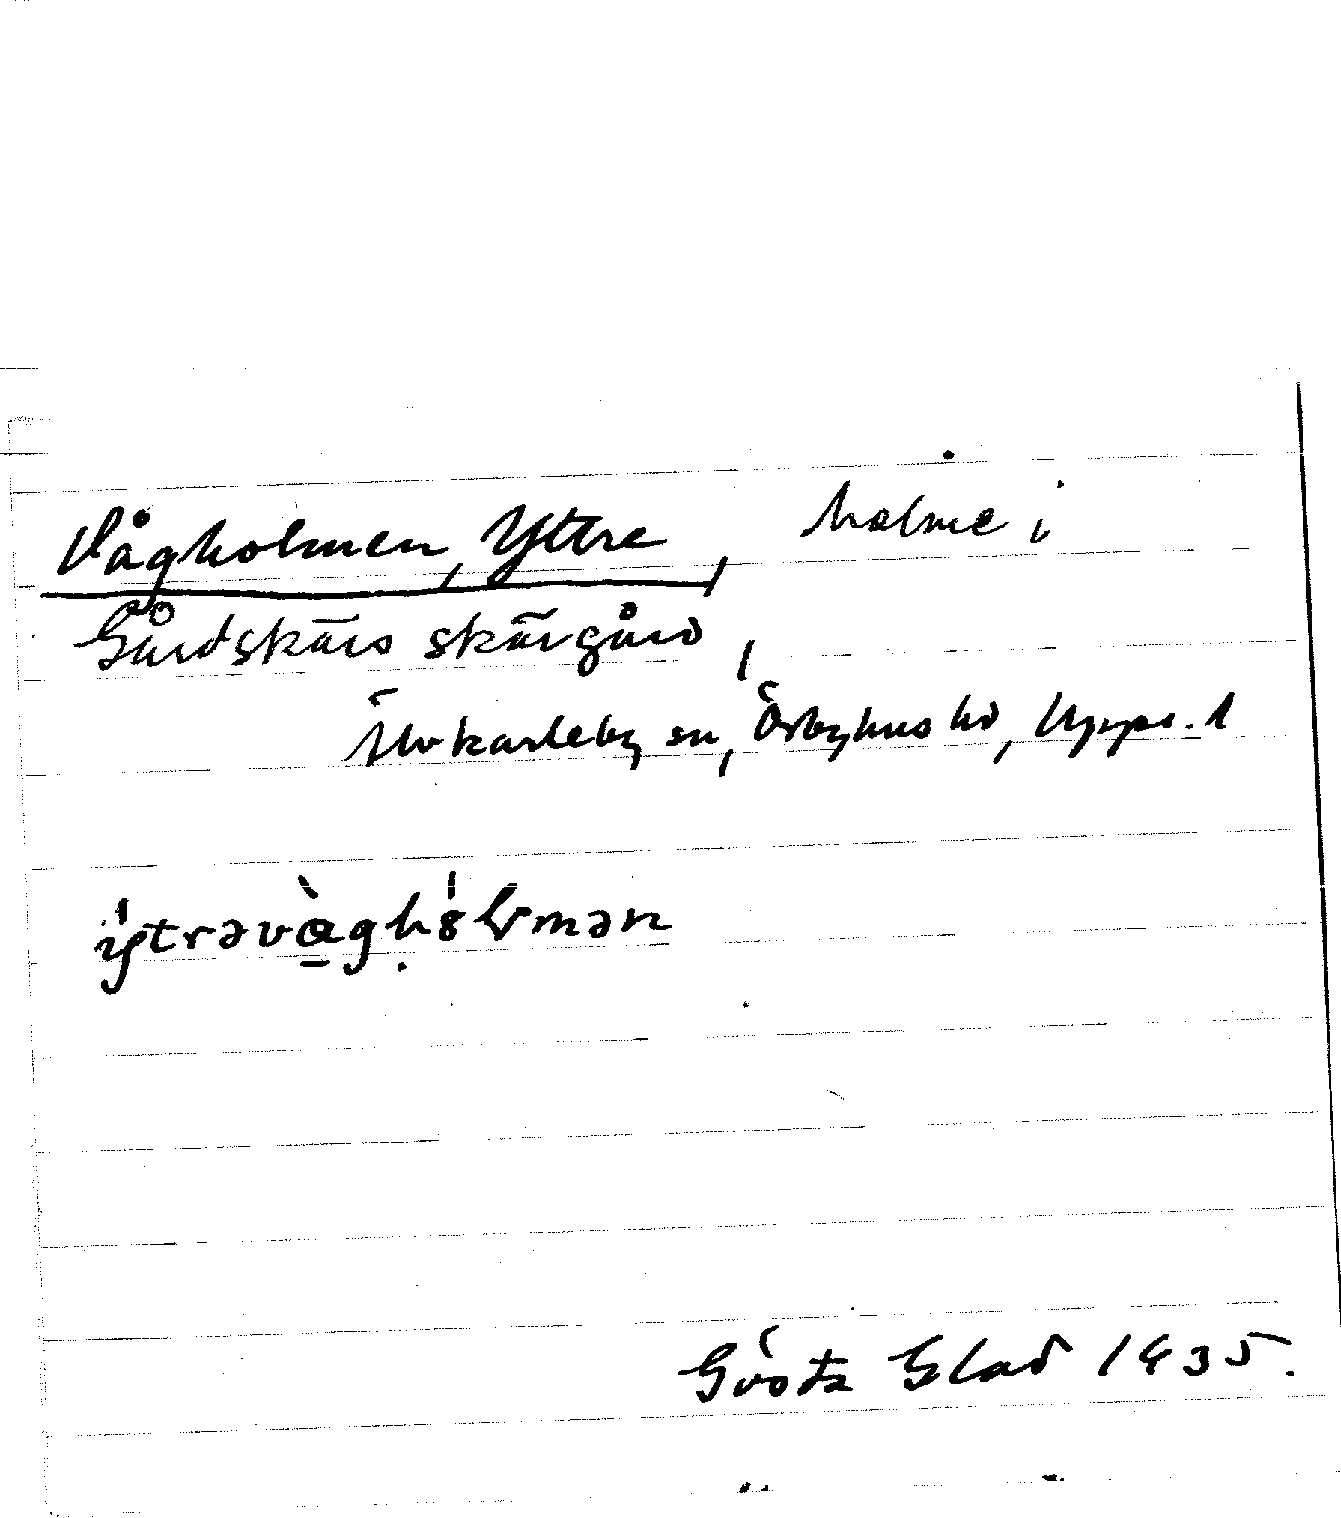 Vågholmen, Yttre, holme i
Gårdskärs skärgård,
Älvkarleby sn, Örbyhus hd, Upps. l
ýtrəvàghólmən
Gösta Glad 1935.